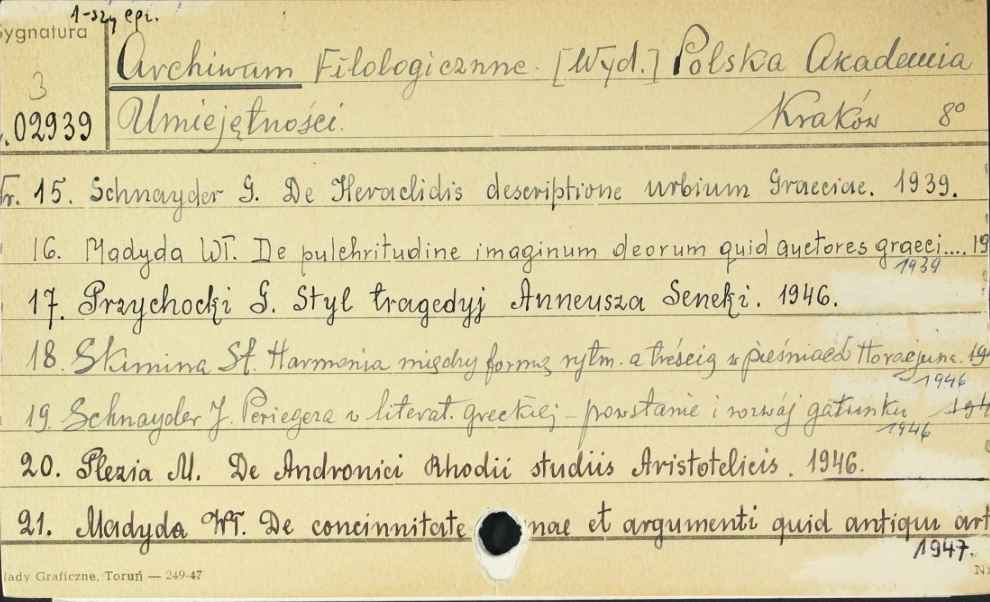 1-szy egz.
Sygnatura
Archiwum Filologicznne. [Wyd.] Polska Akademia
3
02939 Umiejętności. Kraków 8°
Nr. 15. Schnayder G. De Heraclidis descriptione urbium Graeciae. 1939.
16. Madyda Wł. De pulchritudine imaginum deorum quid auctores graeci.... 19
1939
17. Przychocki G. Styl tragedyj Anneusza Seneki. 1946.
18. Skimina St. Harmonia między formą rytm. a treścią w pieśniach Horacjusza.
1946
19. Schnayder J. Periegeza w literat. greckiej – powstanie i rozwój gatunku
1946
20. Plezia M. De Andronici Rhodii studiis Aristotelicis. 1946.
21. Madyda Wł. De concinnitate nae et argumenti quid antiqui art
1947.
łady Graficzne, Toruń — 249-47